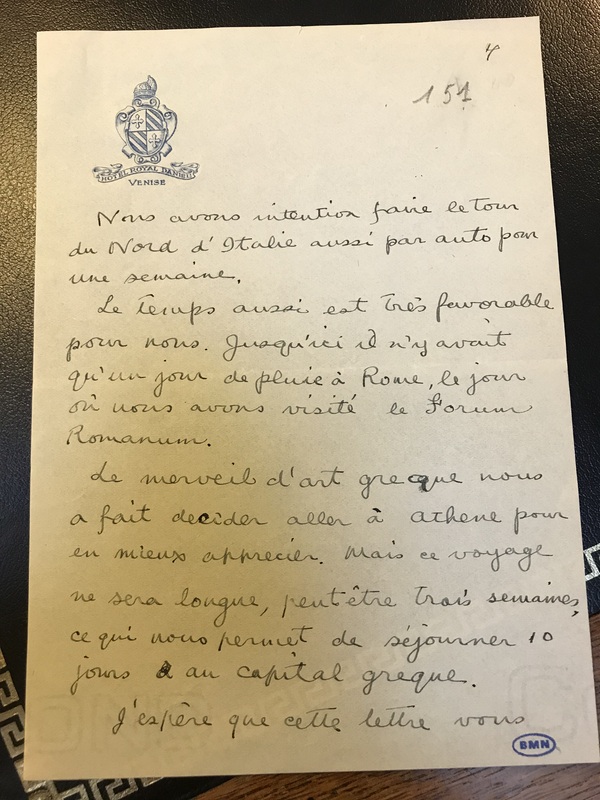 4
151
HOTEL ROYAL DANIELI
VENISE
Nous avons intention faire le tour
du Nord d'Italie aussi par auto pour
une semaine.
Le temps aussi est très favorable
pour nous. Jusqu'ici il n'y avait
qu'un jour de pluie à Rome, le jour
où nous avons visité le Forum
Romanum.
Le merveil d'art grecque nous
a fait decider aller à Athene pour
en mieux apprecier. Mais ce voyage
ne sera longue, peut être trois semaines,
ce qui nous permet de séjourner 10
jours au capital greque.
J'espère que cette lettre vous
BMN